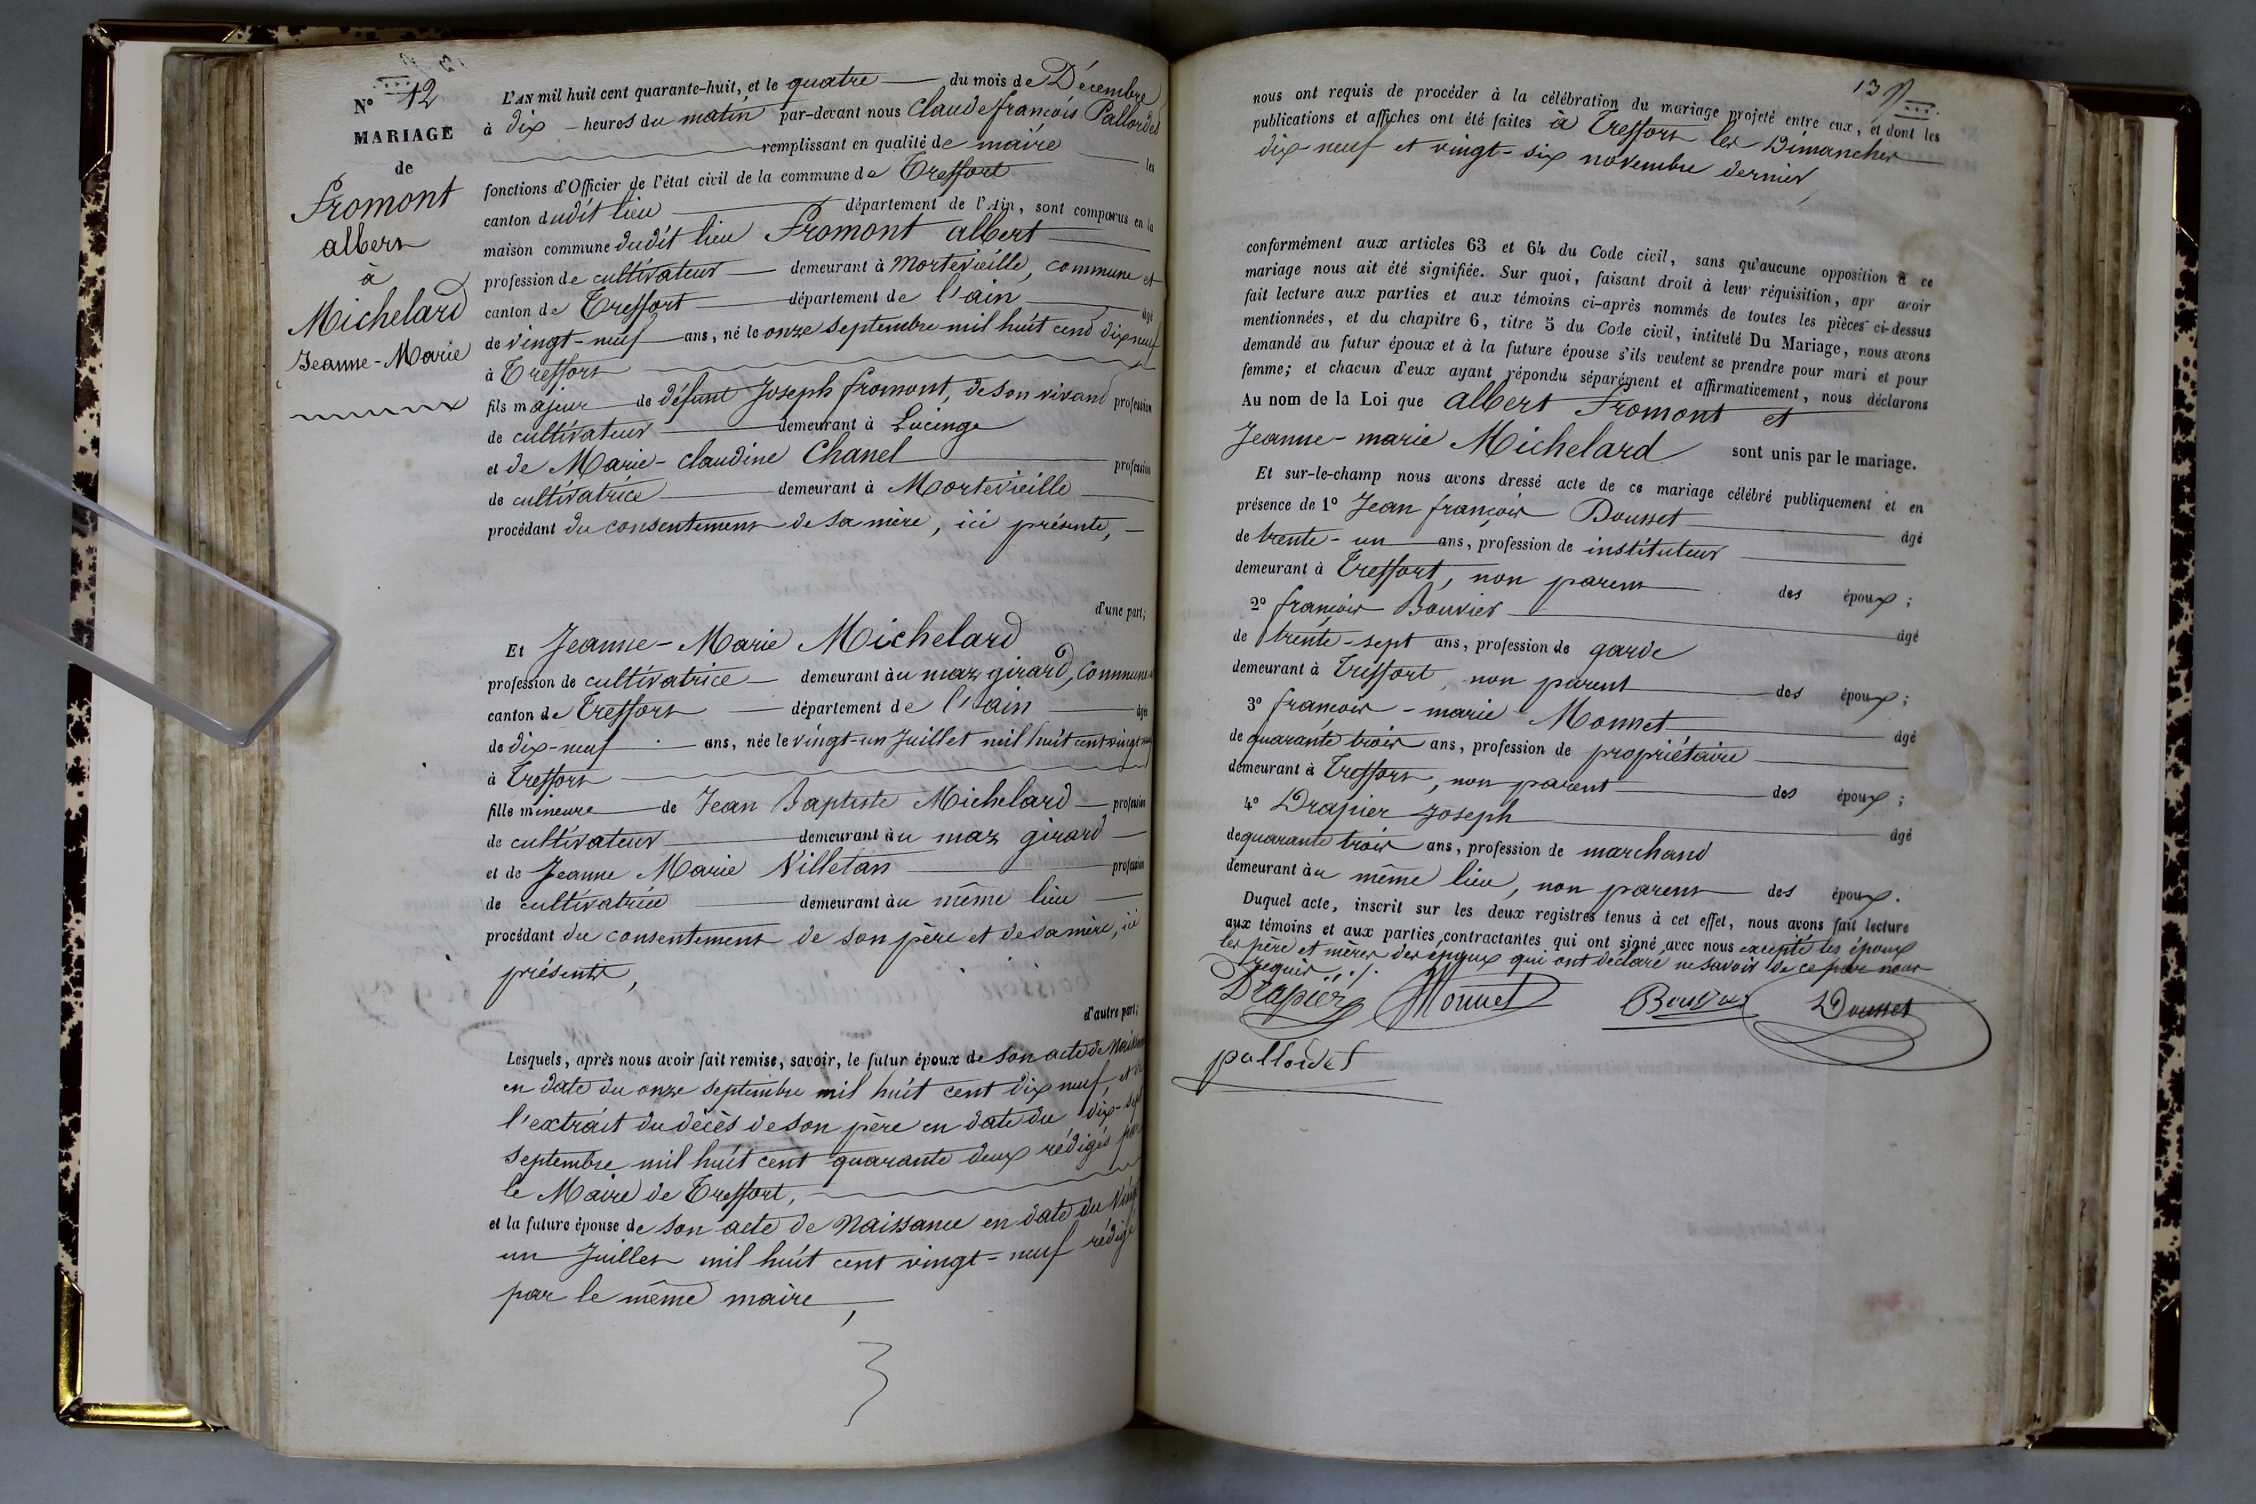 N° 12
MARIAGE
de
Fromont
albert
à
Michelard
Jeanne-Marie
L'AN mil huit cent quarante-huit, et le quatre du mois de Décembre
à dix heures du matin par-devant nous Claude françois Pallordet
remplissant en qualité de maire les
fonctions d'Officier de l'état civil de la commune de Treffort
canton dudit lieu département de l'Ain, sont comparus en la
maison commune dudit lieu Fromont albert
profession de cultivateur demeurant à Mortevieille, commune et
canton de Treffort département de l'ain âgé
de vingt-neuf ans, né le onze septembre mil huit cent dix neuf
à Treffort
fils majeur de défunt Joseph fromont, de son vivant profession
de cultivateur demeurant à Lucinge
et de Marie-claudine Chanel profession
de cultivatrice demeurant à Mortevieille
procédant du consentement de sa mère, ici présente,
d'une part;
Et Jeanne-Marie Michelard
profession de cultivatrice demeurant au maz girard, Commune et
canton de Treffort département de l'ain âgée
de dix-neuf ans, née le vingt-un Juillet mil huit cent vingt neuf
à Treffort
fille mineure de Jean Baptiste Michelard profession
de cultivateur demeurant au maz girard
et de Jeanne Marie Villetan profession
de cultivatrice demeurant au même lieu
procédant du consentement de son père et de sa mère, ici
présents,
d'autre part;
Lesquels, après nous avoir fait remise, savoir, le futur époux de son acte de Naissance
en date du onze septembre mil huit cent dix neuf, et de
l'extrait du décès de son père en date du dix-sept
septembre mil huit cent quarante deux rédigés par
le Maire de Treffort,
et la future épouse de son acte de Naissance en date du Vingt
un Juillet mil huit cent vingt-neuf rédigé
par le même maire,
13
nous ont requis de procéder à la célébration du mariage projeté entre eux, et dont les
publications et affiches ont été faites à Treffort les Dimanches
dix-neuf et vingt-six novembre dernier,
conformément aux articles 63 et 64 du Code civil, sans qu'aucune opposition à ce
mariage nous ait été signifiée. Sur quoi, faisant droit à leur réquisition, apr avoir
fait lecture aux parties et aux témoins ci-après nommés de toutes les pièces ci-dessus
mentionnées, et du chapitre 6, titre 5 du Code civil, intitulé Du Mariage, nous avons
demandé au futur époux et à la future épouse s'ils veulent se prendre pour mari et pour
femme; et chacun d'eux ayant répondu séparément et affirmativement, nous déclarons
Au nom de la Loi que albert Fromont et
Jeanne-marie Michelard sont unis par le mariage.
Et sur-le-champ nous avons dressé acte de ce mariage célébré publiquement et en
présence de 1° Jean françois Dousset âgé
de trente-un ans, profession de instituteur
demeurant à Treffort, non parent des époux;
2° françois Bouvier âgé
de trente-sept ans, profession de garde
demeurant à Treffort, non parent des époux;
3° françois-marie Monnet âgé
de quarante trois ans, profession de propriétaire
demeurant à Treffort, non parent des époux;
4° Drapier Joseph âgé
de quarante trois ans, profession de marchand
demeurant au même lieu, non parent des époux.
Duquel acte, inscrit sur les deux registres tenus à cet effet, nous avons fait lecture
aux témoins et aux parties contractantes qui ont signé avec nous excepté les époux
les père et mères des époux qui ont déclaré ne savoir de ce par nous
requis ./.
Drapier Monnet Bouvier Dousset
pallordet